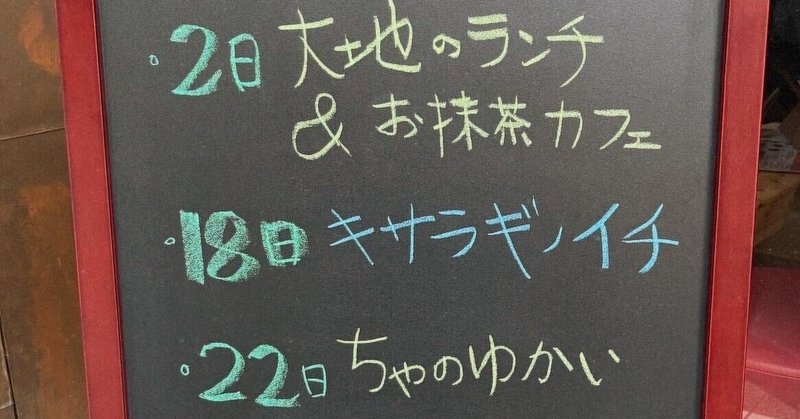 ・2日 大地のランチ
& お抹茶カフェ
・18日 キサラギノイチ
・22日 ちゃのゆかい